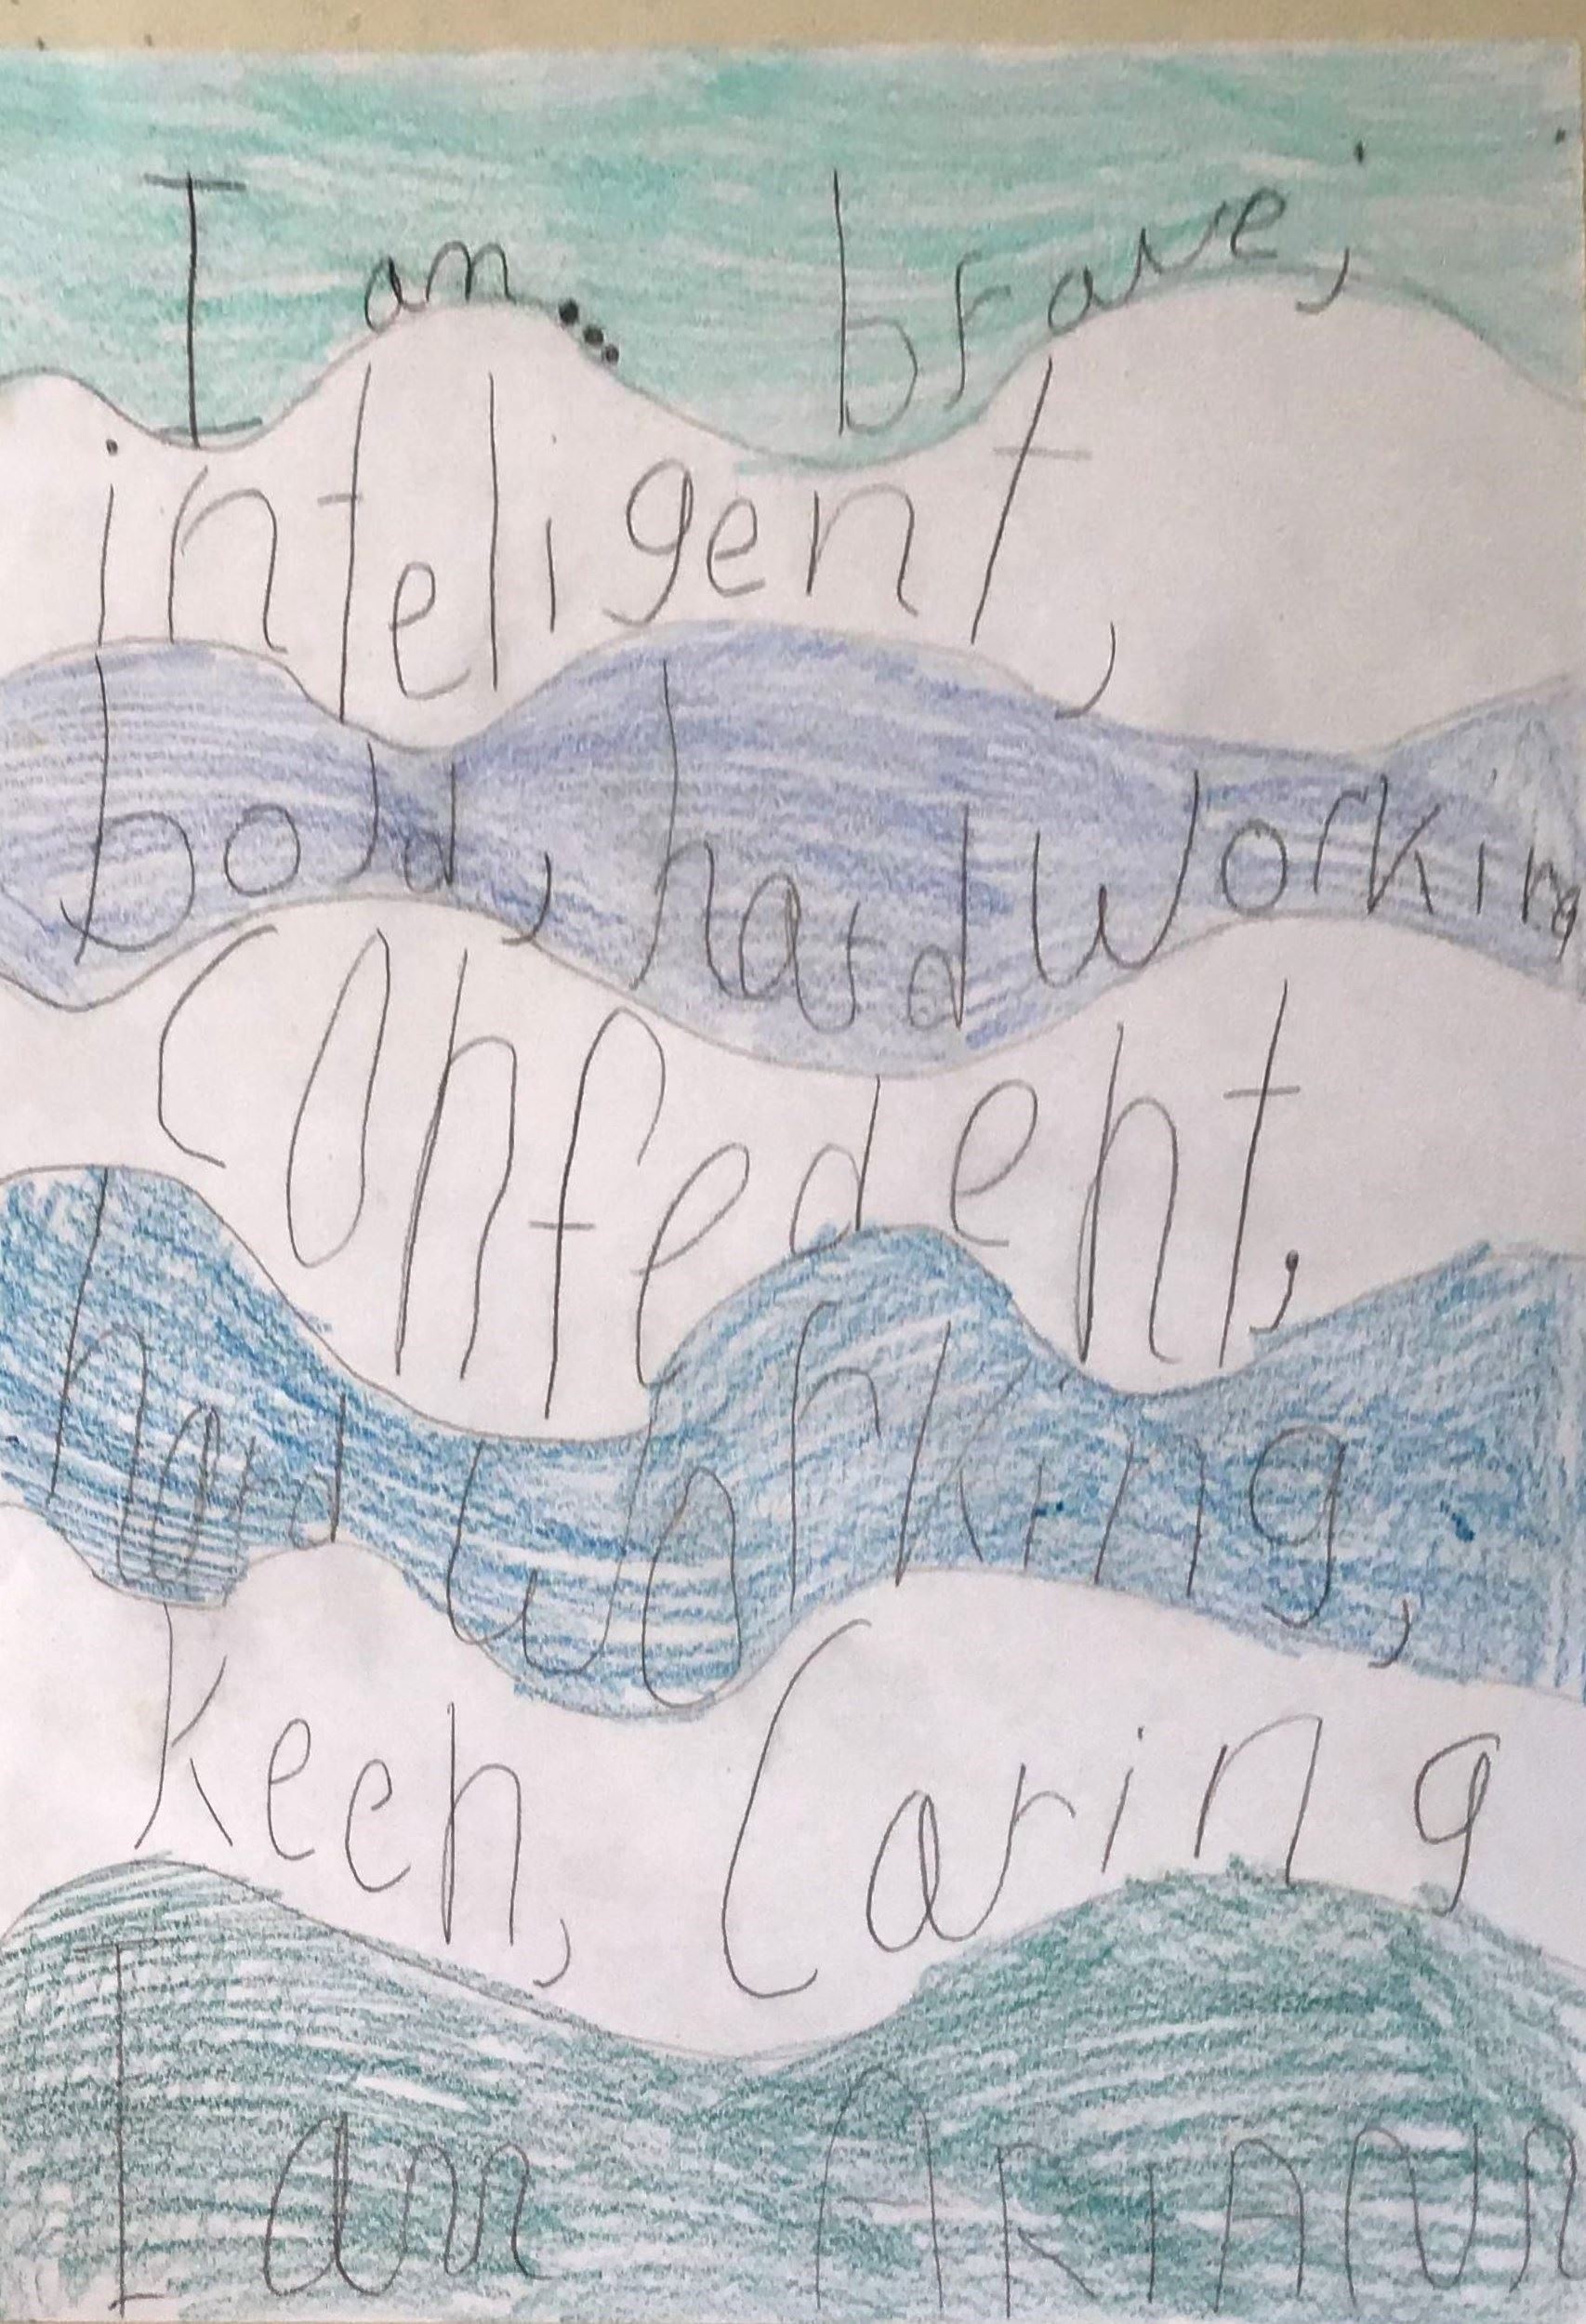 I am... brave,
inteligent,
bold, hardworking
confedent,
hard working,
keen, Caring
I am